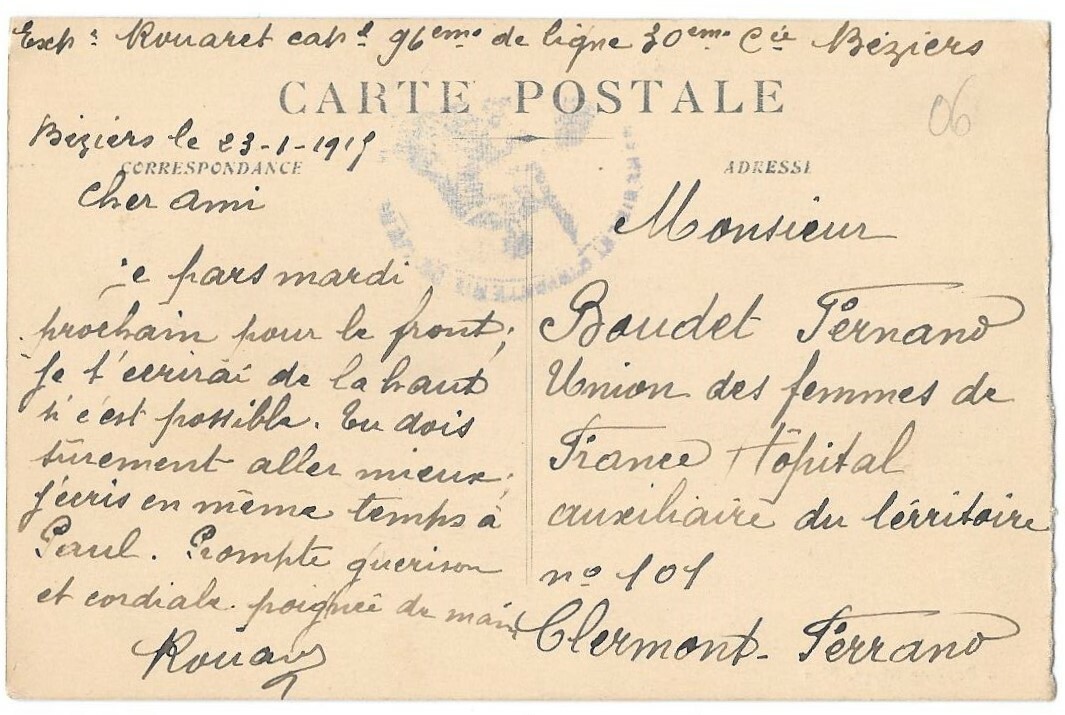 Exp. Rouaret capl 96eme de ligne 30eme Cie Béziers
CARTE POSTALE
06
Béziers le 23-1-1915
CORRESPONDANCE
Cher ami
je pars mardi
prochain pour le front;
Je t'écrirai de la haut
si c'est possible. Tu dois
sûrement aller mieux;
J'écris en même temps à
Paul. Prompte guerison
et cordiale poignée de main
Rouaret
ADRESSE
Monsieur
Boudet Fernand
Union des femmes de
France Hôpital
auxiliaire du térritoire
no 101
Clermont-Ferrand